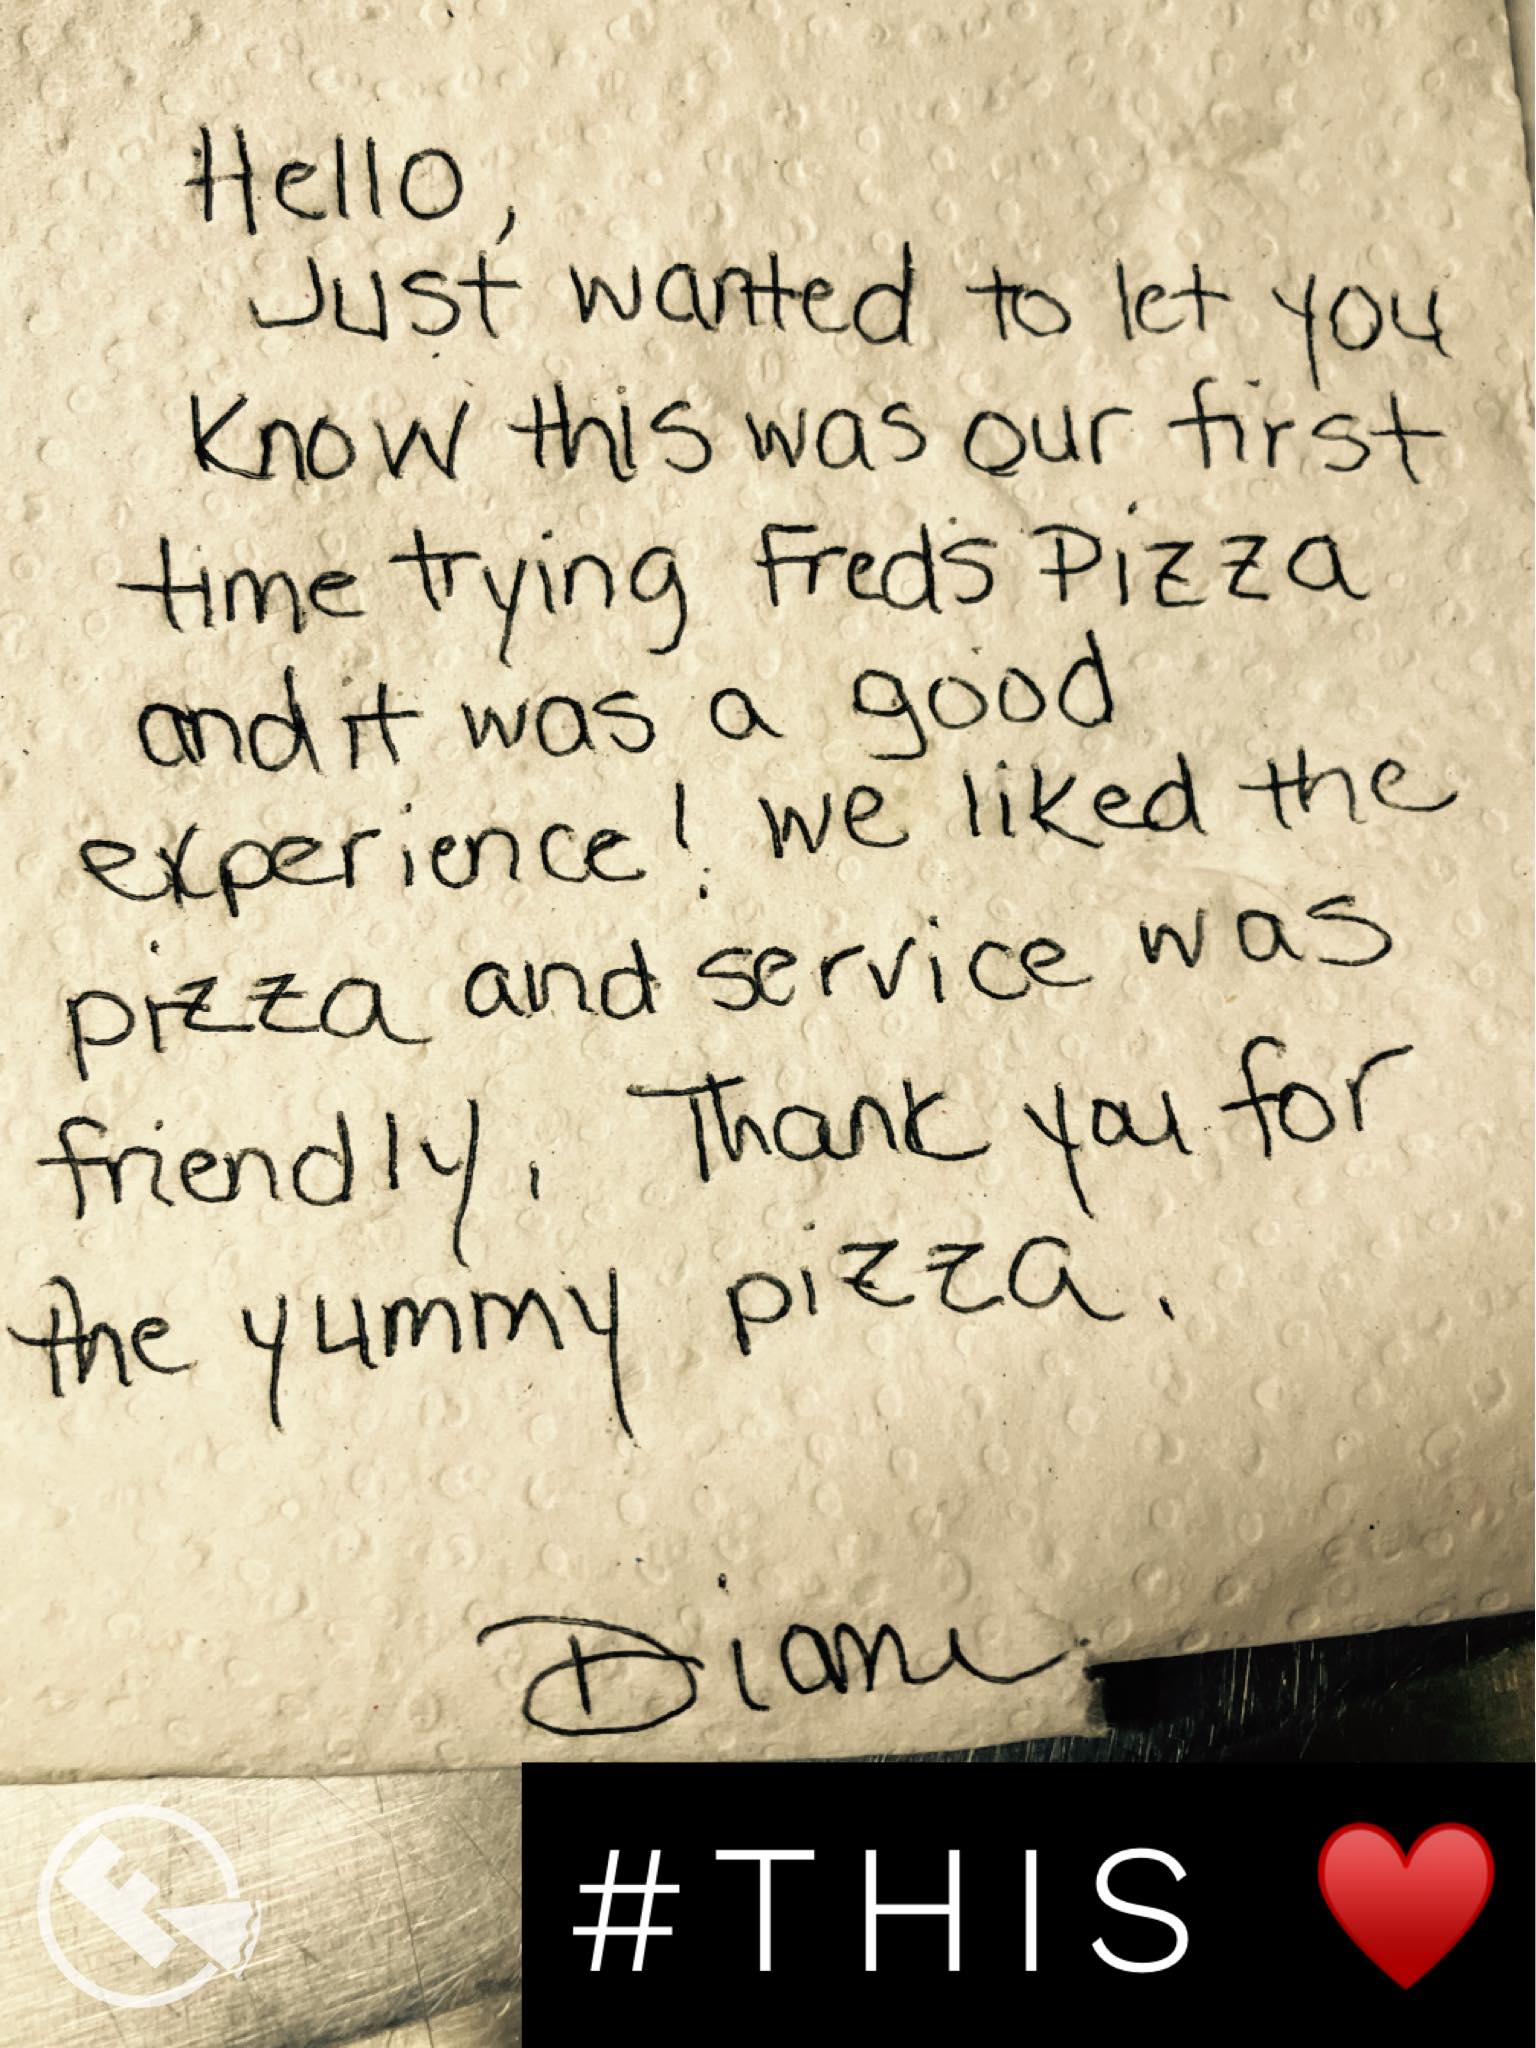 Hello,
Just wanted to let you
know this was our first
time trying Fred's Pizza
and it was a good
experience! we liked the
pizza and service was
friendly. Thank you for
the yummy pizza.
Diane
F
#THIS ♥